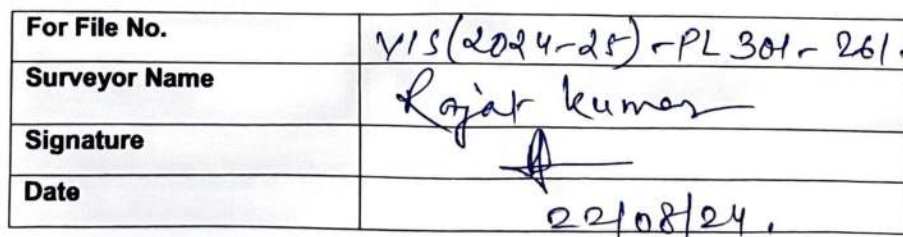 For File No. VIS(2024-25)-PL301-261.
Surveyor Name Rajat Kumar
Signature
Date 22/08/24.